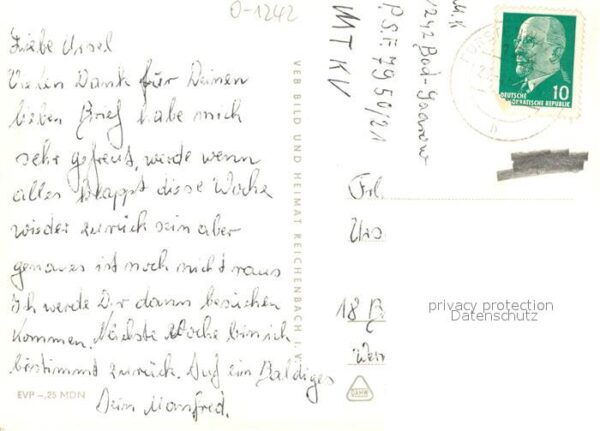 O-1242
Liebe Ursel
Vielen Dank für Deinen
lieben Brief habe mich
sehr gefreut, werde wenn
alles klappt diese Woche
wieder zurück sein aber
genaues ist noch nicht raus
Ich werde Dir dann besuchen
kommen. Nächste Woche bin ich
bestimmt zurück. Auf ein Baldiges
Dein Manfred.
EVP -,25 MDN
VEB BILD UND HEIMAT REICHENBACH I. V.
M.K
1242 Bad-Saarow
P.S.F. 7950/21
MTKV
10
DEUTSCHE
DEMOKRATISCHE REPUBLIK
Frl.
18
privacy protection
Datenschutz